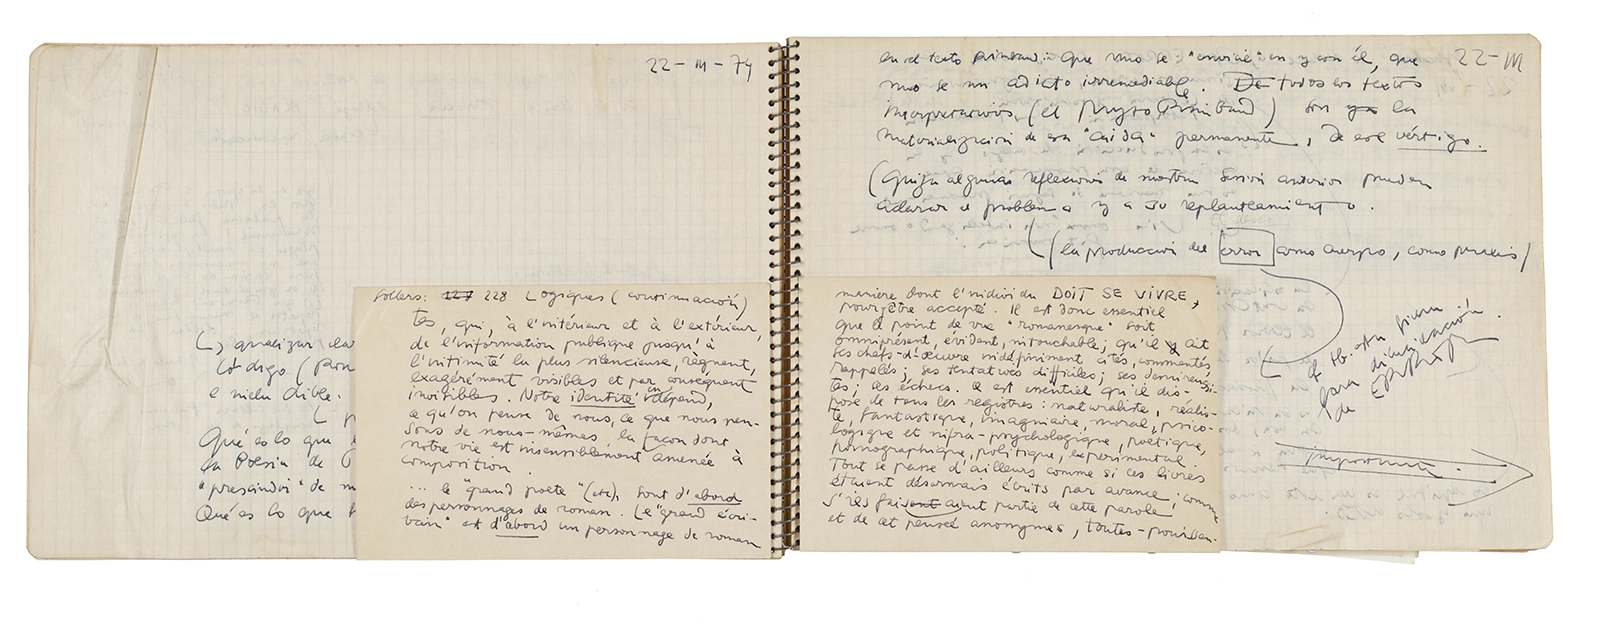 22-III-74
↳ analizar la
Código (
e
Qué es lo que
la Poesía de
"prescindir" de
Qué es lo que
Sollers: 227 228 Logiques (continuación)
tés, qui, à l'intérieur et à l'extérieur,
de l'information publique jusqu'à
l'intimité la plus silencieuse, règnent,
exagérément visibles et par conséquent
invisibles. Notre identité en dépend,
ce qu'on pense de nous, ce que nous pen-
sons de nous-mêmes, la façon dont
notre vie est insensiblement amenée à
composition.
... le "grand poète" (etc), sont d'abord
des personnages de roman. Le "grand écri-
vain" est d'abord un personnage de roman
22-III
en el texto que uno se "envicie" en y con él, que
uno se un adicto irremediable. De todos los textos
(el Rimbaud) son ya la
materialización de esa "caída" permanente, de ese vértigo.
(Quizá algunas reflexiones de nuestra sesión anterior puedan
aclarar el problema y a su replanteamiento.
(la producción del error como cuerpo, como praxis)
manière dont l'individu DOIT SE VIVRE,
pour être accepté. Il est donc essentiel
que le point de vue "romanesque" soit
omniprésent, évident, intouchable; qu'il y ait
ses chefs-d'œuvre indéfiniment cités, commentés,
rappelés; ses tentatives difficiles; ses demi-réussi-
tes; ses échecs. Il est essentiel qu'il dis-
pose de tous les registres: naturaliste, réalis-
te, fantastique, imaginaire, moral, psico-
logique et infra-psychologique, poétique,
pornographique, politique, experimental.
Tout se passe d'ailleurs comme si ces livres
étaient désormais écrits par avance; comme
s'ils faisaient partie de cette parole
et de cet pensée anonymes, toutes-puissan-
para
de
importante.